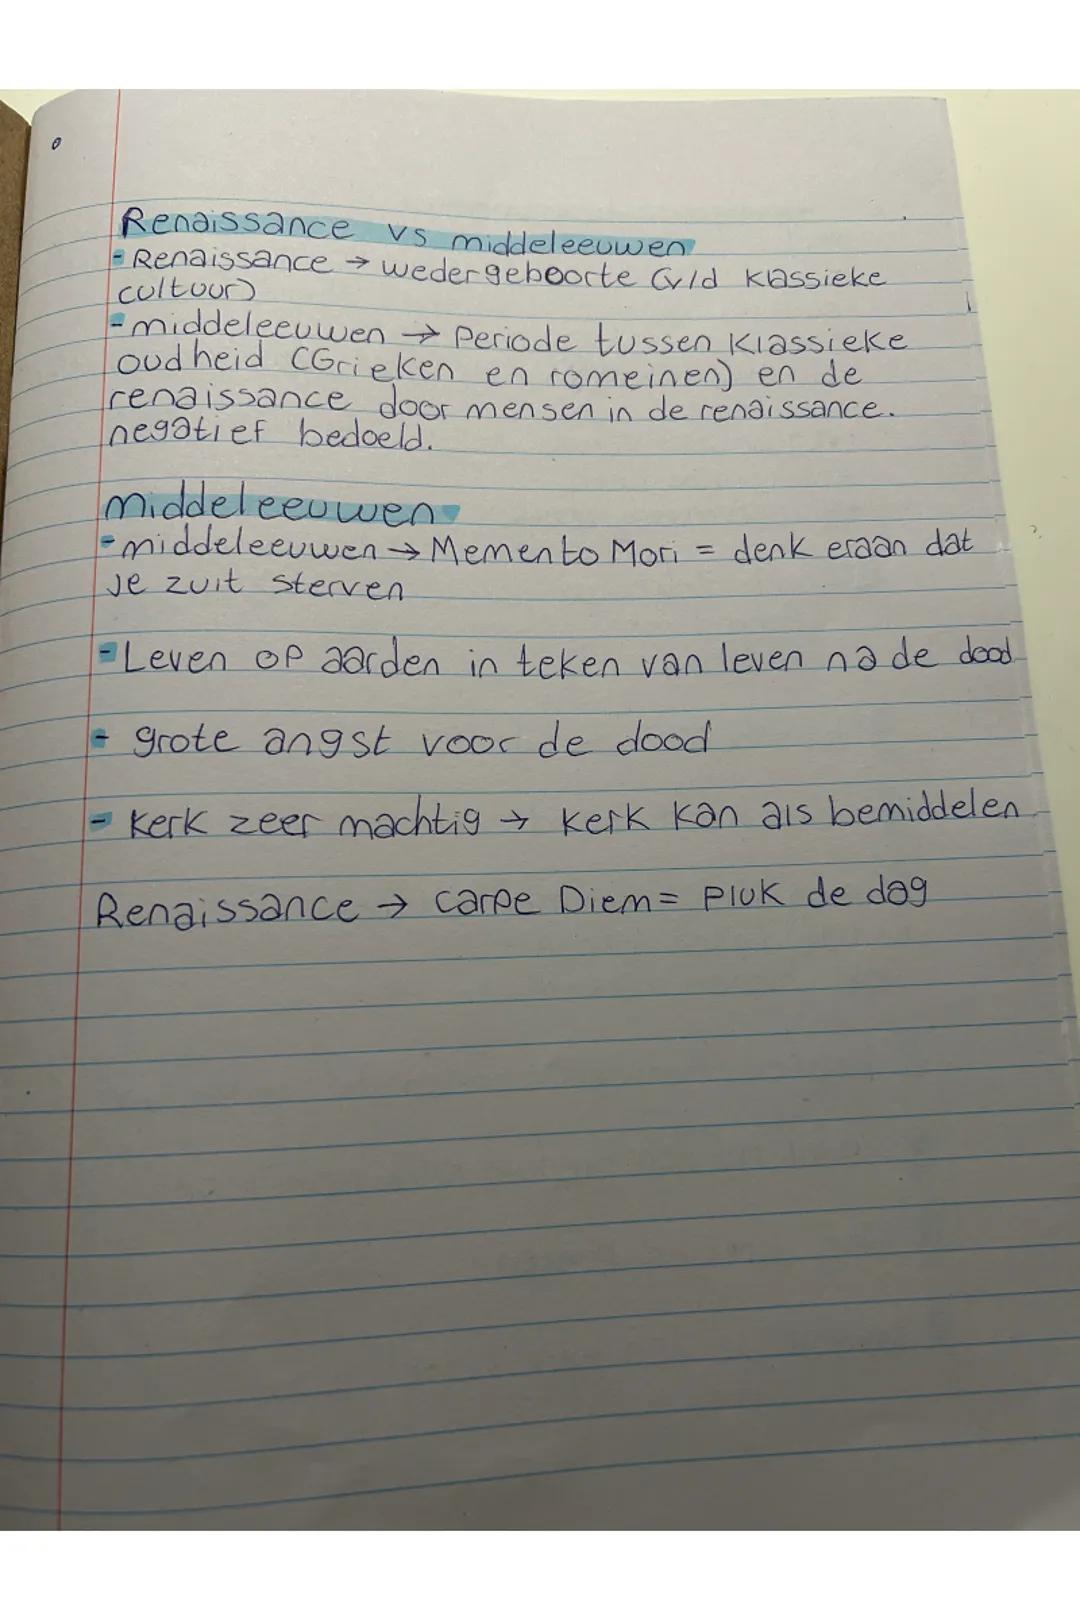 Renaissance vs middeleeuwen
- Renaissance → wedergeboorte (v/d klassieke
cultuur)
- middeleeuwen → Periode tussen klassieke
oudheid (Grieken en romeinen) en de
renaissance door mensen in de renaissance.
negatief bedoeld.
middeleeuwen
- middeleeuwen → Memento Mori = denk eraan dat
je zult sterven
- Leven op aarden in teken van leven na de dood
- grote angst voor de dood
- kerk zeer machtig → kerk kan als bemiddelen
Renaissance → carpe Diem = Pluk de dag